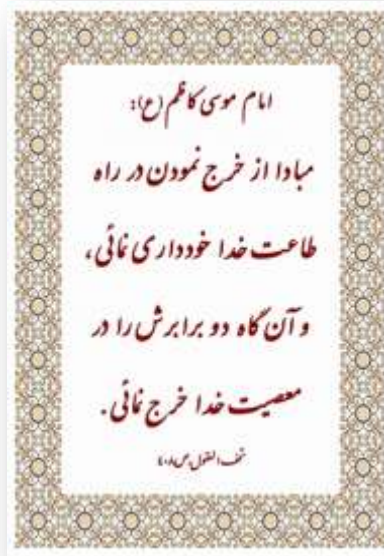 امام موسی کاظم (ع):
مبادا از خرج نمودن در راه
طاعت خدا خودداری نمائی،
و آن گاه دو برابرش را در
معصیت خدا خرج نمائی.
تحف العقول ص۴۰۸